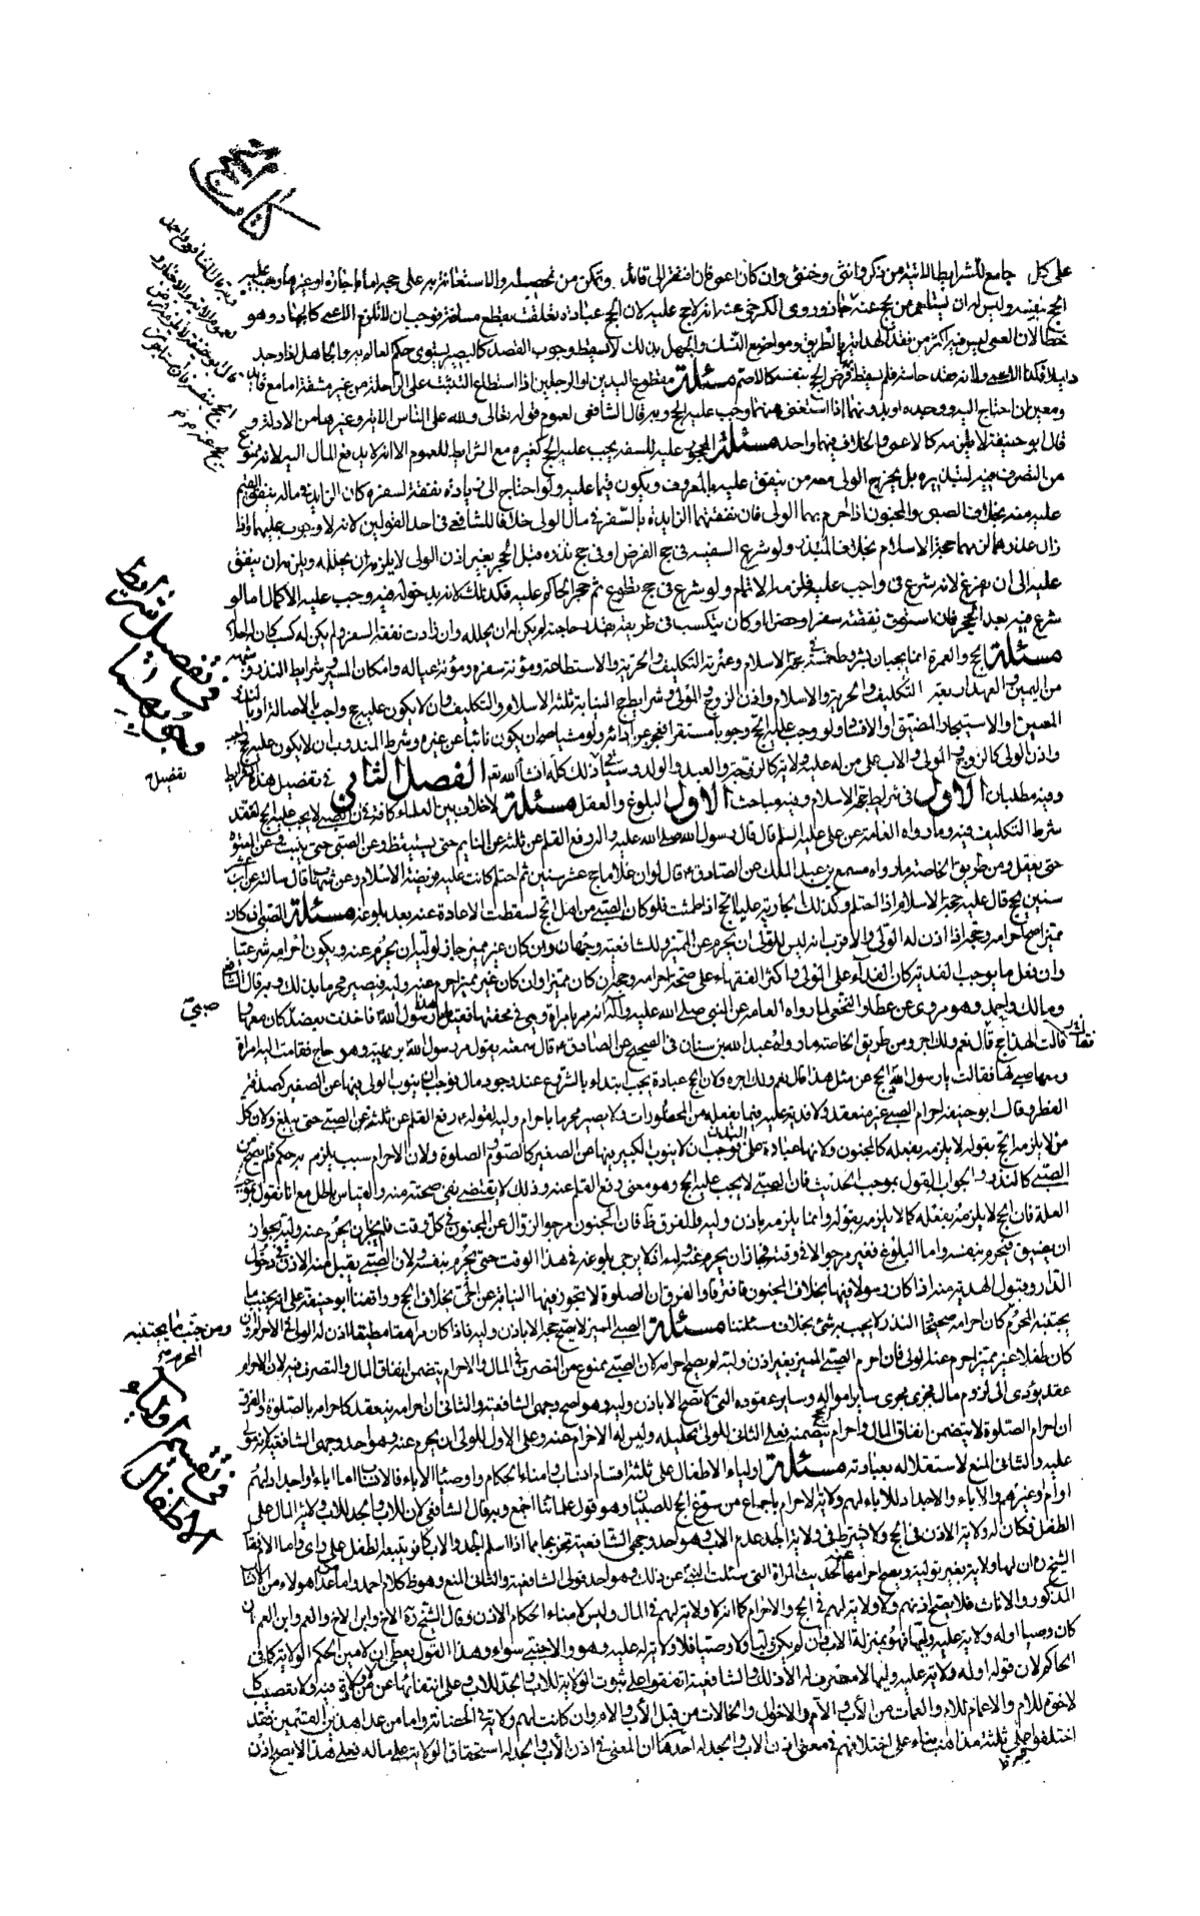 كتاب الحج
على كل جامع للشرايط الاتية من ذكر وانثى وخنثى وان كان اعمى فان افتقر الى قائد وتمكن من تحصيله والاستعانة به على حجه اما باجارة او غيرها وجب عليه
الحج بنفسه وليس له ان يستأجر من يحج عنه
خطا لان العمى ليس فيه اكثر من فقد الهداية بالطريق ومواضع النسك والجهل بذلك لا يسقط وجوب القصد كالبصير يستوى حكم العالم به والجاهل اذا وجد
دليلا فكذا الاعمى ولانه فقد حاسة فلم يسقط فرض الحج بنفسه كالاصم مسئلة مقطوع اليدين او الرجلين اذا استطاع التثبت على الراحلة من غير مشقة اما مع قائد
ومعين ان احتاج اليه ووجده او بدونهما اذا استغنى عنهما وجب عليه الحج وبه قال الشافعى لعموم قوله تعالى ولله على الناس الاية وغيرها من الادلة و
قال ابو حنيفة لا يلزمه كالاعمى والخلاف فيهما واحد مسئلة المحجور عليه للسفه يجب عليه الحج كغيره مع الشرايط للعموم الا انه لا يدفع المال اليه لانه ممنوع
من التصرف فيه لتبذيره بل يخرج الولى معه من ينفق عليه بالمعروف ويكون قيما عليه ولو احتاج الى زيادة نفقة لسفره كان الزايد فى ماله ينفق القيم
عليه منه بخلاف الصبى والمجنون اذا احرم بهما الولى فان نفقتهما الزايدة بالسفر فى مال الولى خلافا للشافعى فى احد القولين لانه لا وجوب عليهما واذا
زال عذرهما لزمهما حجة الاسلام بخلاف المبذر ولو شرع السفيه فى حج الفرض او فى حج نذره قبل الحجر بغير اذن الولى لا يلزمه ان يحلله ويلزمه ان ينفق
عليه الى ان يفرغ لانه شرع فى واجب عليه فلزمه الاتمام ولو شرع فى حج تطوع ثم حجر الحاكم عليه فكذلك لانه بدخوله فيه وجب عليه الاكمال اما لو
شرع فيه بعد الحجر فان استوت نفقته سفرا وحضرا او كان يتكسب فى طريقه بقدر حاجته لم يكن له ان يحلله وان زادت نفقة السفر ولم يكن له كسب كان له احلاله
مسئلة الحج والعمرة انما يجبان بشروط خمسة فى حجة الاسلام وعمرته التكليف والحرية والاستطاعة ومؤنة سفره ومؤنة عياله وامكان المسير وشرايط النذر وشبهه
من اليمين والعهد اربعة التكليف والحرية والاسلام واذن الزوج والمولى وشرايط حج النيابة ثلثة الاسلام والتكليف وان لا يكون عليه حج واجب بالاصالة او بالنذر
المعين او الاستيجار المضيق او الافساد ولو وجب عليه الحج وجوبا مستقرا فعجز عن ادائه ولو مشيا صح ان يكون نائبا عن غيره وشرط المندوب ان لا يكون عليه حج واجب
واذن الولى كالزوج والمولى والاب على من له عليه ولاية كالزوجة والعبد والولد وسيأتى ذلك كله انشاء الله تع الفصل الثانى فى تفصيل هذه الشرايط
وفيه مطلبان الاول فى شرايط حجة الاسلام وفيه مباحث الاول البلوغ والعقل مسئلة لا خلاف بين العلماء كافة فى ان الصبى لا يجب عليه الحج لفقد
شرط التكليف فيه وما رواه العامة عن على عليه السلم قال قال رسول الله صلى الله عليه وآله رفع القلم عن ثلثة عن النايم حتى يستيقظ وعن الصبى حتى يشب وعن المعتوه
حتى يعقل ومن طريق الخاصة ما رواه مسمع بن عبد الملك عن الصادق ع قال لو ان غلاما حج عشر سنين ثم احتلم كانت عليه فريضة الاسلام وعن شهاب قال سالته عن ابن عشر
سنين يحج قال عليه حجة الاسلام اذا احتلم وكذلك الجارية عليها الحج اذا طمثت فلو كان الصبى من اهل الحج لسقطت الاعادة عنه بعد بلوغه مسئلة الصبى ان كان
مميزا صح احرامه وحجه اذا اذن له الولى والاقرب انه ليس للولى ان يحرم عن المميز وللشافعية وجهان وان كان غير مميز جاز لوليه ان يحرم عنه ويكون احرامه شرعيا
وان فعل ما يوجب الفدية كان الفداء على الولى واكثر الفقهاء على صحة احرامه وحجه ان كان مميزا وان كان غير مميز احرم عنه وليه فيصير محرما بذلك وبه قال الشافعى
ومالك واحمد وهو مروى عن عطا والنخعى لما رواه العامة عن النبى صلى الله عليه وآله انه مر بامراة وهى فى محفتها فقيل لها هذا رسول الله فاخذت بعضد كان معها و
قالت الهذا حج قال نعم ولك اجر ومن طريق الخاصة ما رواه عبد الله بن سنان فى الصحيح عن الصادق ع قال سمعته يقول مر رسول الله برويثة وهو حاج فقامت اليه امراة
ومعها صبى لها فقالت يا رسول الله ايحج عن مثل هذا قال نعم ولك اجره ولان الحج عبادة يجب ابتداء بالشرع عند وجود مال فوجب ان ينوب الولى فيها عن الصغير كصدقة
الفطر وقال ابو حنيفة احرام الصبى غير منعقد ولا فدية عليه فيما يفعله من المحظورات ولا يصير محرما باحرام وليه لقوله ع رفع القلم عن ثلثة عن الصبى حتى يبلغ ولان كل
من لا يلزمه الحج بقوله لا يلزمه بفعله كالمجنون ولانها عبادة على البدن فوجب ان لا ينوب الكبير فيها عن الصغير كالصوم والصلوة ولان الاحرام سبب يلزم به حكم فلم يصح من
الصبى كالنذر والجواب القول بموجب الحديث فان الصبى لا يجب عليه الحج وهو معنى رفع القلم عنه وذلك لا يقتضى نفى صحته منه والقياس باطل مع انا نقول بموجب
العلة فان الحج لا يلزمه بفعله كما لا يلزمه بقوله وانما يلزمه باذن وليه والفرق ظ فان الجنون مرجو الزوال عن المجنون فى كل وقت فلم يجز ان يحرم عنه وليه بجواز
ان يفيق فيحرم بنفسه واما البلوغ فغير مرجو الا فى وقته فجاز ان يحرم عنه وليه اذ لا يرجى بلوغه فى هذا الوقت حتى يحرم بنفسه ولان الصبى يقبل منه الاذن فى دخول
الدار وقبول الهدية منه اذا كان رسولا فيها بخلاف المجنون فافترقا والفرق ان الصلوة لا تجوز فيها النيابة عن الحى بخلاف الحج ووافقنا ابو حنيفة على انه يجنبه ما
يجتنبه المحرم كان احرامه صحيحا النذر لا يجب به شئ بخلاف مسئلتنا مسئلة الصبى المميز لا يصح حجه الا باذن وليه فاذا كان مراهقا مطيقا اذن له الولى فى الاحرام وان
كان طفلا غير مميز احرم عنه الولى فان احرم الصبى المميز بغير اذن وليه لم يصح احرامه لان الصبى ممنوع من التصرف فى المال والاحرام يتضمن انفاق المال والتصرف فيه لان الاحرام
عقد يؤدى الى لزوم مال فجرى مجرى ساير امواله وساير عقوده التى لا تصح الا باذن وليه وهو اصح وجهى الشافعية والثانى ان احرامه ينعقد كاحرامه بالصلوة والفرق
ان احرام الصلوة لا يتضمن انفاق المال واحرام الحج يتضمنه فعلى الثانى للولى تحليله وليس له الاحرام عنه وعلى الاول للولى ان يحرم عنه وهو احد وجهى الشافعية لانه مولى
عليه والثانى المنع لاستقلاله بعبادته مسئلة اولياء الاطفال على ثلثة اقسام انساب وامناء الحكام واوصياء الآباء فالانساب اما اباء واجداد لهم
او ام وغيرهم والآباء والاجداد للآباء لهم ولاية الاحرام باجماع من سوغ الحج للصبيان وهو قول علمائنا اجمع وبه قال الشافعى لان للاب والجد للاب ولاية المال على
الطفل فكان له ولاية الاذن فى الحج ولا يشترط فى ولاية الجد عدم الاب وهو احد وجهى الشافعية تخريجا بما اذا اسلم الجد والاب كافر يتبعه الطفل على راى واما الام فقال
الشيخ ره ان لها ولاية بغير تولية ويصح احرامها عنه لحديث المراة التى سئلت النبى ص عن ذلك وهو احد قولى الشافعية والثانى المنع وهو ظ كلام احمد واما غير هؤلاء من الانساب
الذكور والاناث فلا يصح اذنهم ولا ولاية لهم فى الحج والاحرام كما انه لا ولاية لهم فى المال وليس لامناء الحكام الاذن وقال الشيخ ره الاخ وابن الاخ والعم وابن العم ان
كان وصيا او له ولاية عليه وليها فهو بمنزلة الاب فان لم يكن وليا ولا وصيا فلا ولاية له عليه وهو والاجنبى سواء وهذا القول يعطى ان لامين الحكم الولاية كما فى
الحاكم لان قوله او له ولاية عليه وليها لا مصرف له الا ذلك والشافعية اتفقوا على ثبوت الولاية للاب والجد للاب وعلى انتفائها عمن لا ولاية فيه ولا تعصيب كا
لاخوة للام والاعمام للام والعمات من الاب والام والاخوال والخالات من قبل الاب والام وان كانت لهم ولاية فى الحضانة واما من عدا هذين القسمين فقد
اختلفوا على ثلثة مذاهب بناء على اختلافهم فى معنى اذن الاب والجد له احدها ان المعنى فى اذن الاب والجد له استحقاق الولاية على ماله فعلى هذا لا يصح اذن
فى تفصيل شرايط
وجوبهما
تفصيل
صبى
ومن جنب ما يجتنبه
المحرم
فى تقسيم اولياء
الاطفال